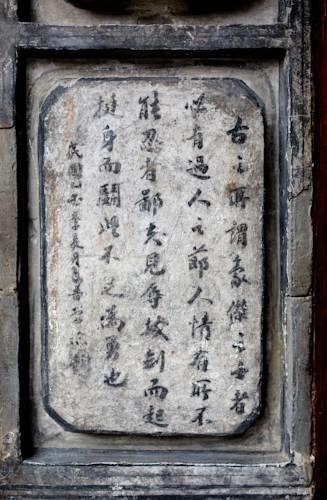 古之所謂豪傑之士者
必有過人之節人情有所不
能忍者鄙夫見辱拔劍而起
挺身而鬭此不足為勇也
民國